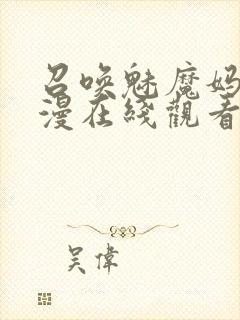 召唤魅魔妈
漫在綫觀看
吴偉